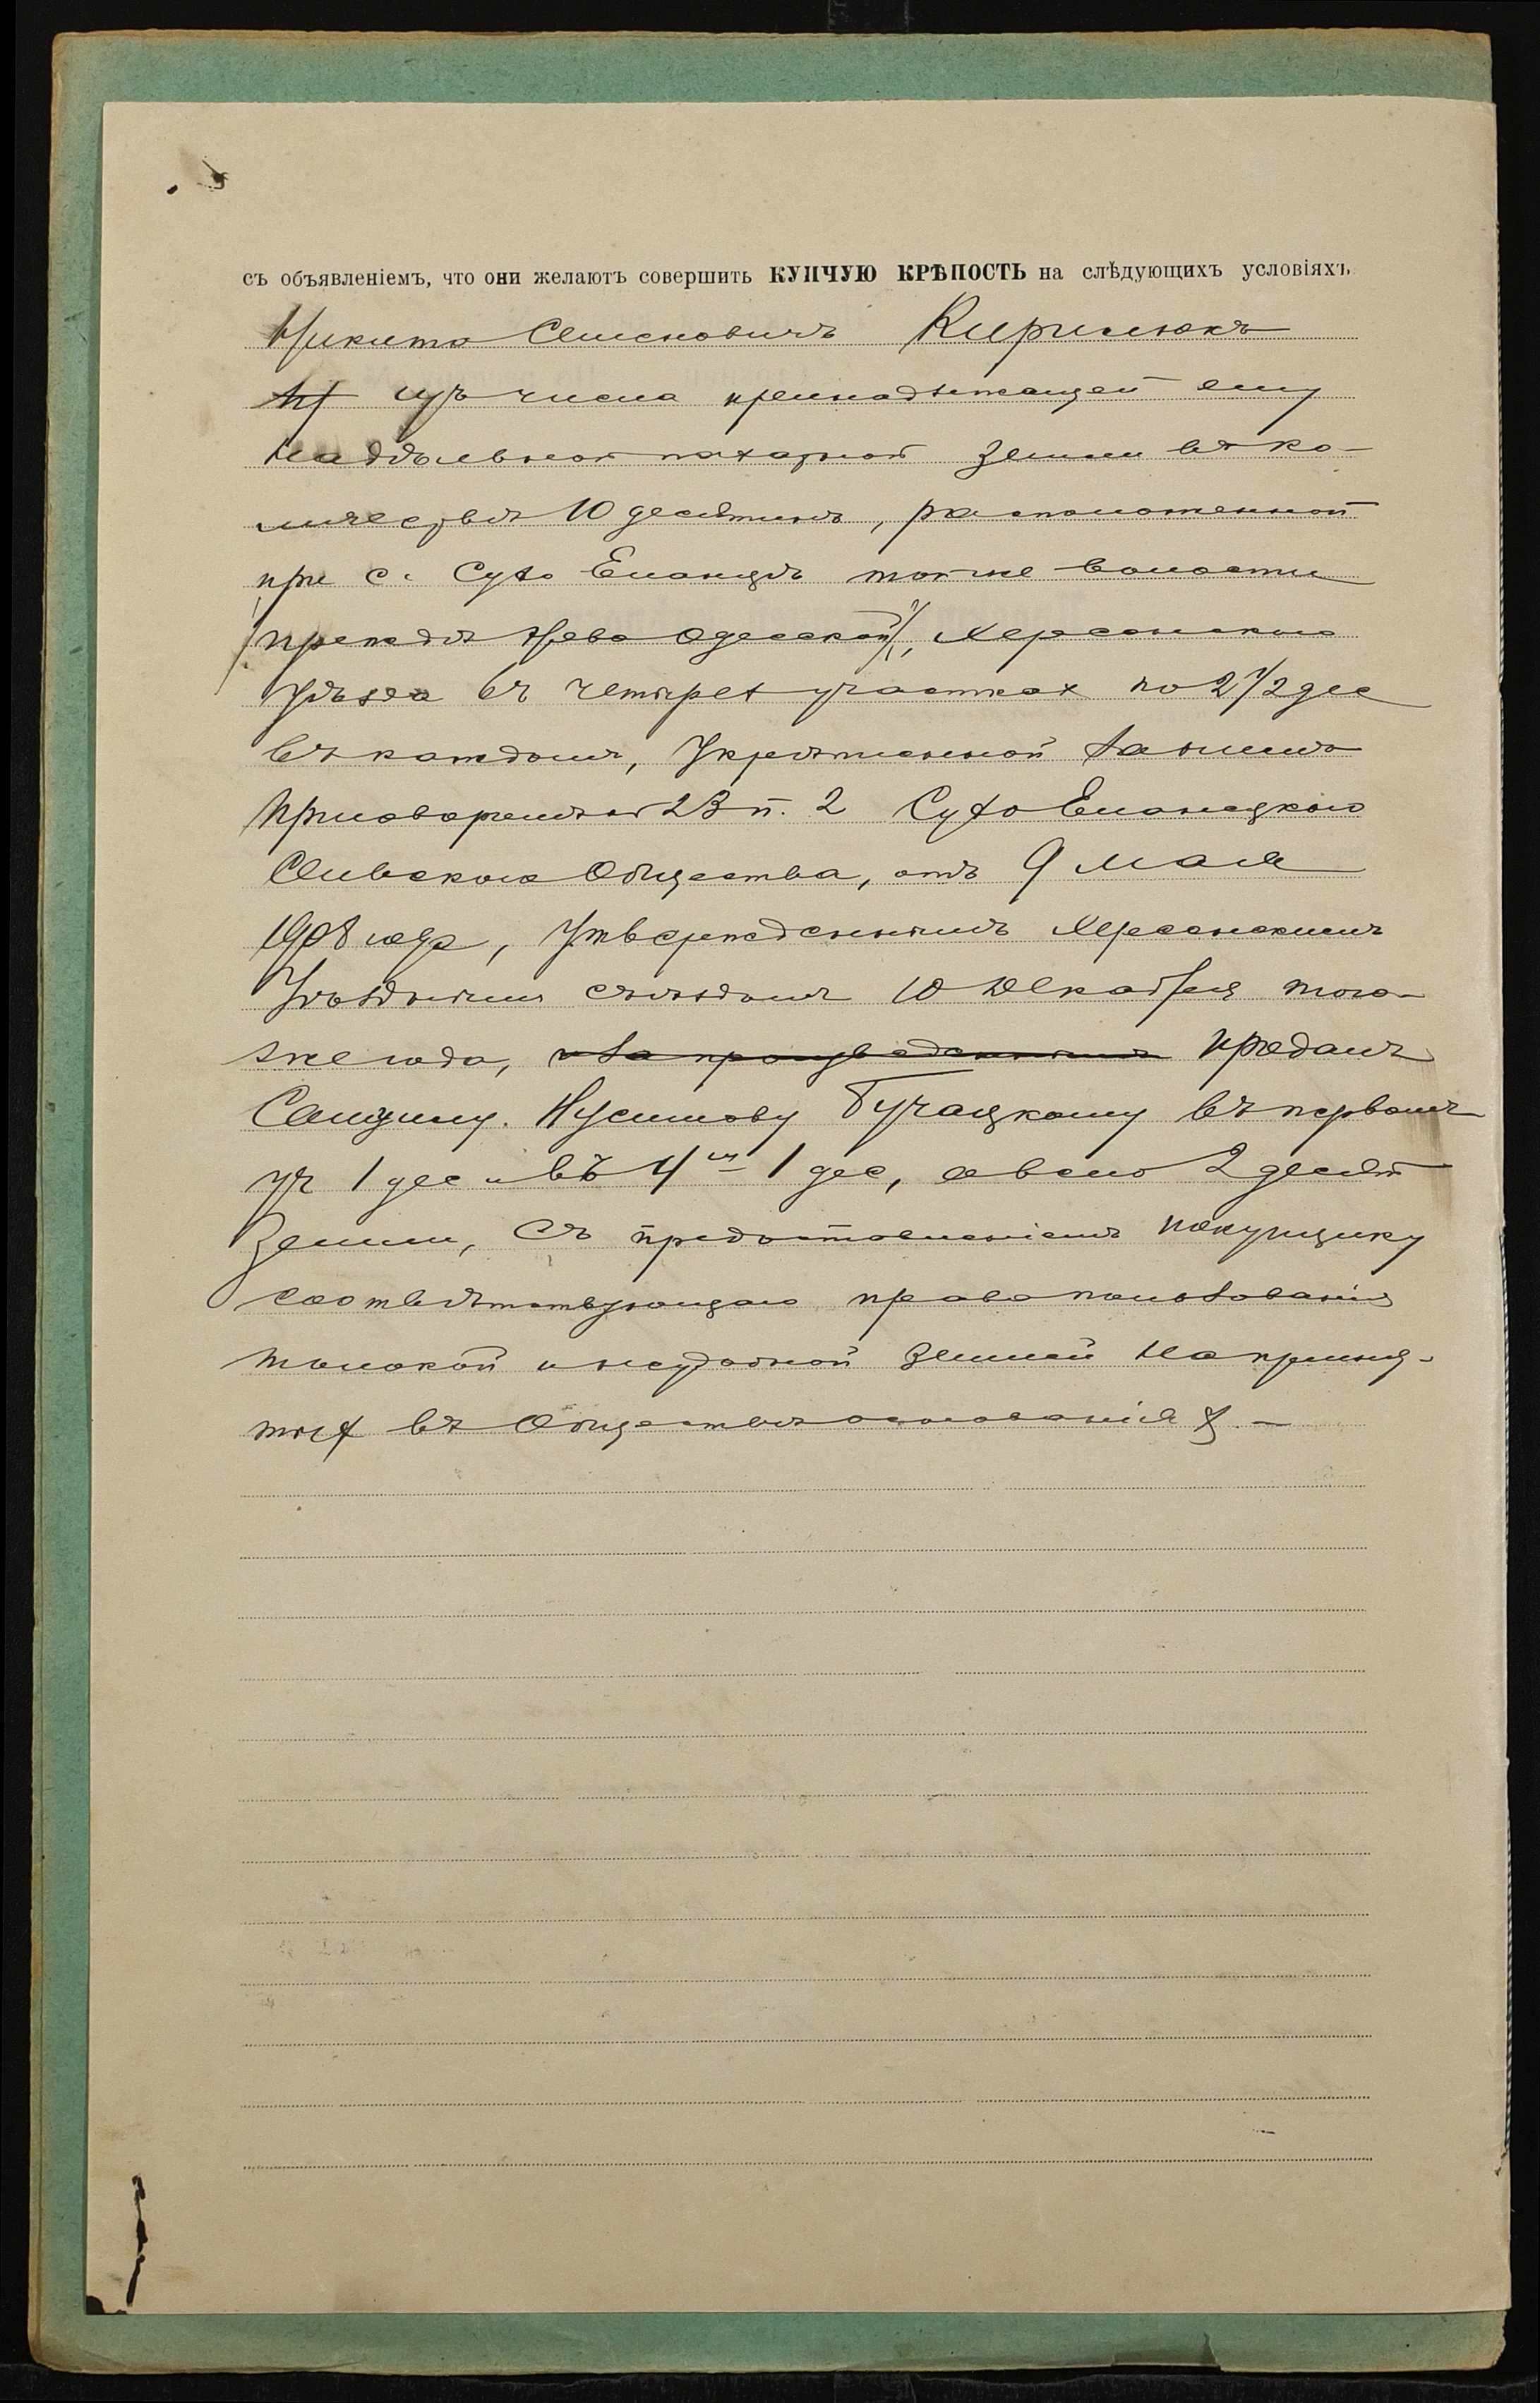 съ объявленіемъ, что они желаютъ совершить КУПЧУЮ КРѢПОСТЬ на слѣдующихъ условіяхъ
Никита Семеновичъ Кирилюкъ
изъ числа принадлежащей ему
надѣльной пахатной земли въ ко-
личествѣ 10 десятинъ, расположенной
при с. Сухо Еланцѣ той же волости
/прежде Ново Одесской/, Херсонскаго
уѣзда въ четырех участках по 2 1/2 дес
въ каждомъ, укрѣпленной за нимъ
приговоромъ 23 п. 2 Сухо Еланецкаго
Сельскаго Общества, отъ 9 мая
1908 года, утвержденнымъ Херсонскимъ
Уѣзднымъ съѣздомъ 10 декабря того-
же года, продалъ
Бугацкому въ первомъ
уч 1 дес и въ 4мъ 1 дес, а всего 2 десят
земли, съ предоставленіемъ покупщику
соотвѣтствующаго права пользованія
толокой и неудобной землей на приня-
тых въ Обществѣ основаніях. —